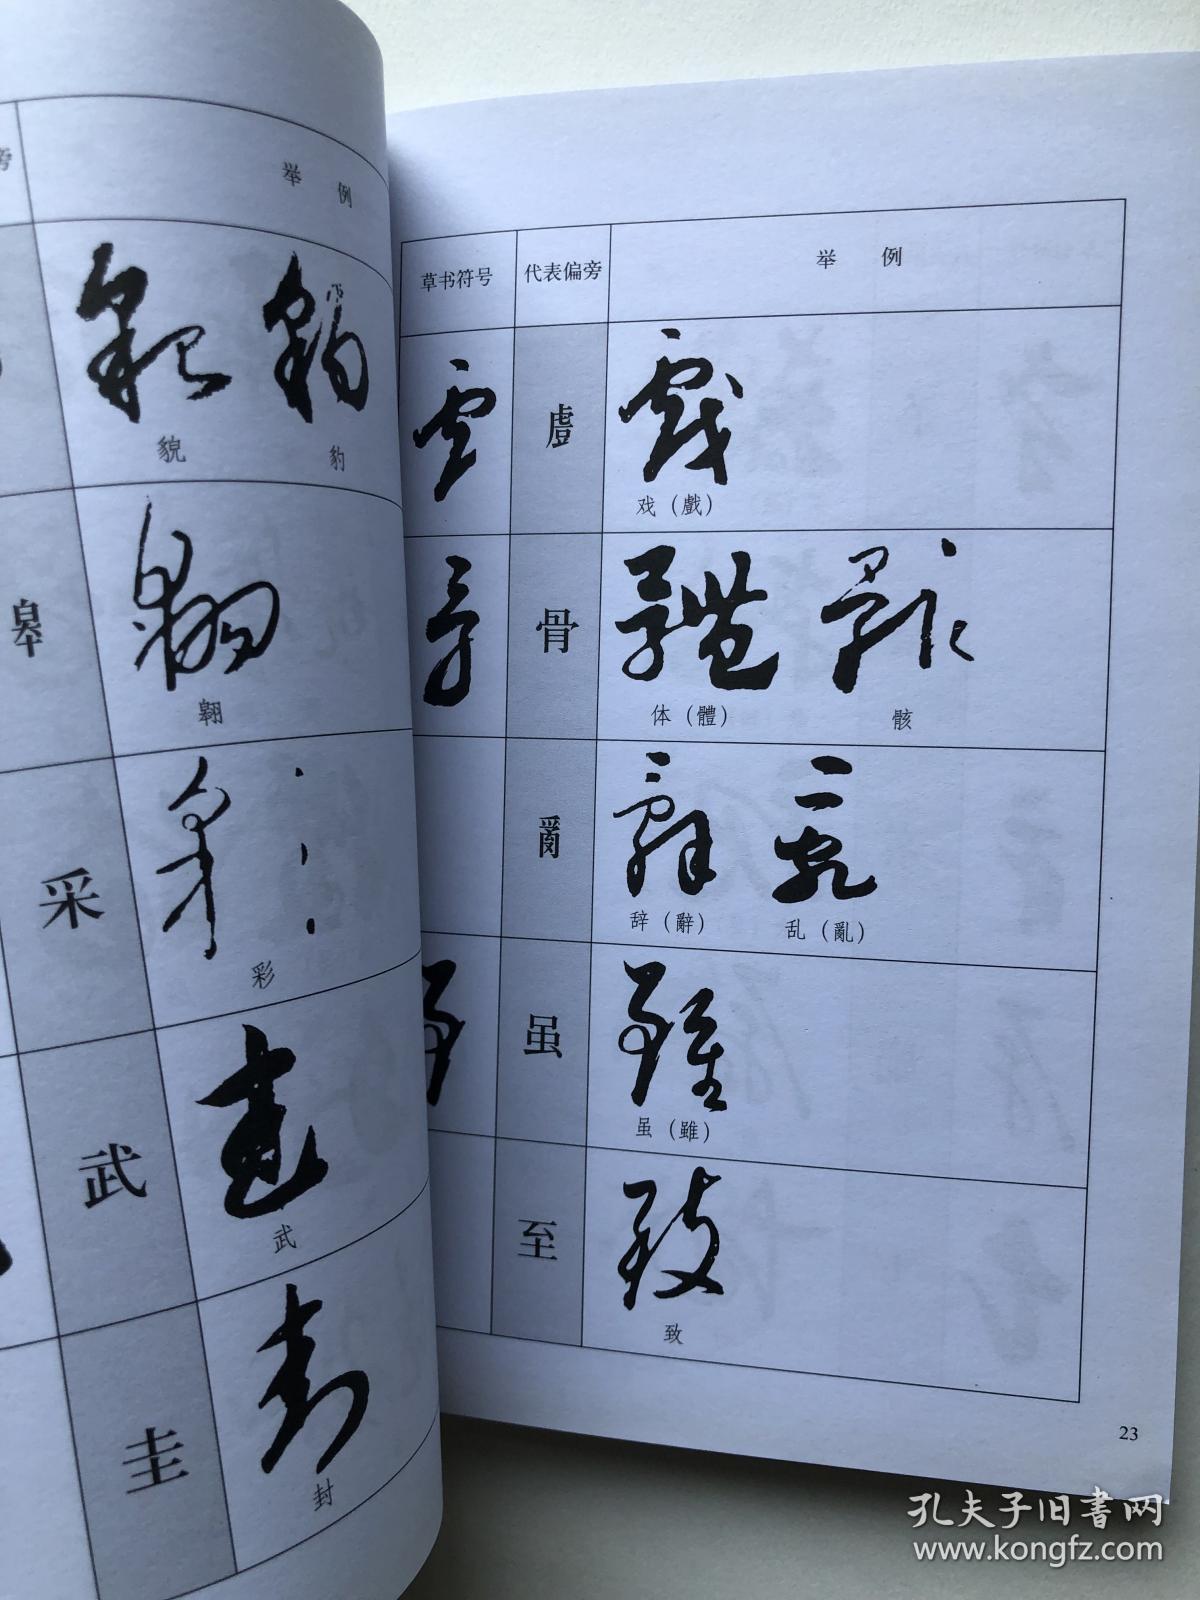 旁
举 例
貌 豹
皋
翱
采
彩
武
武
圭
封
草书符号 代表偏旁 举 例
戏（戲）
骨
体（體） 骸
辞（辭） 乱（亂）
虽
虽（雖）
至
致
23
孔夫子旧书网
www.kongfz.com